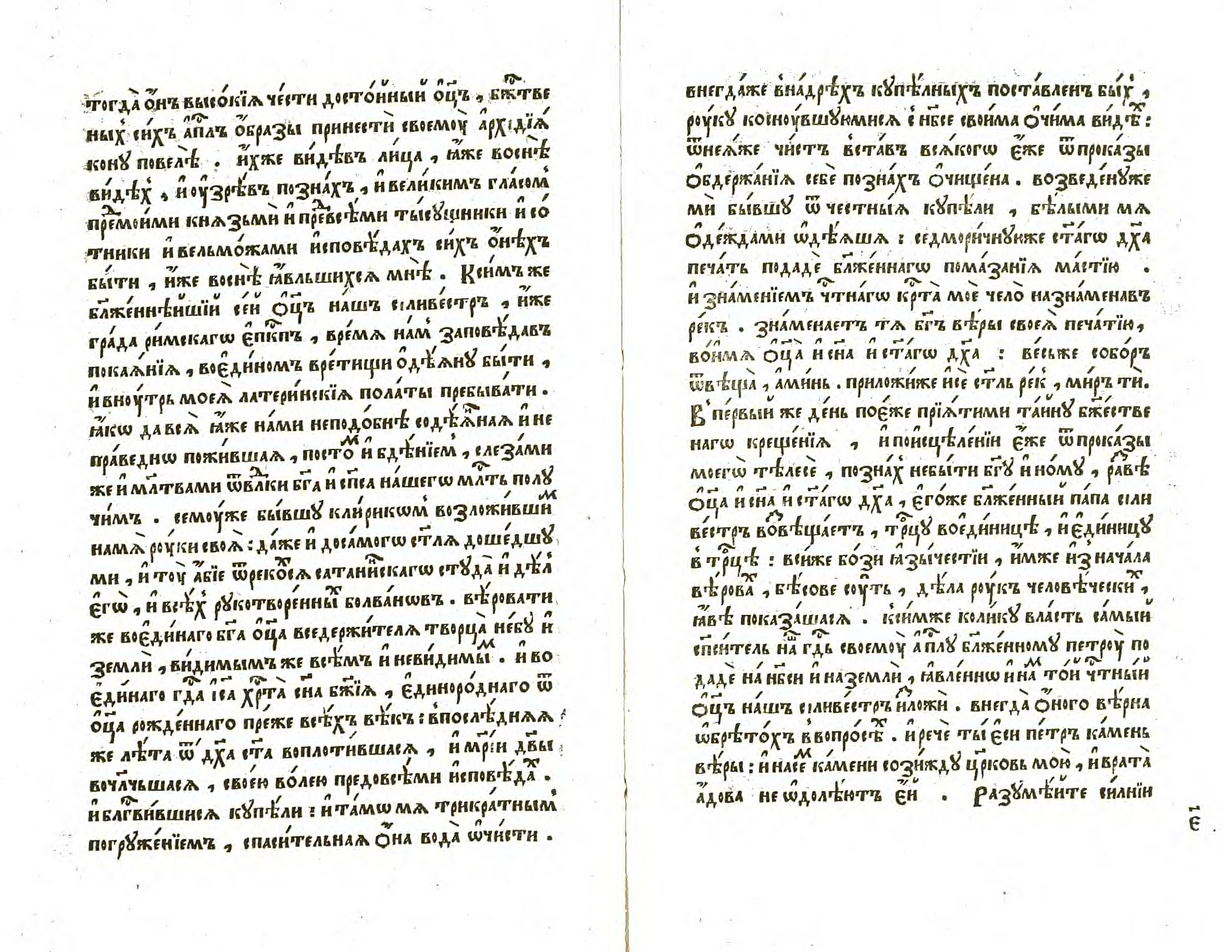 тогда̀ ѻ҆́нъ высо́кїѧ че́сти досто́йный ѻ҆ц҃ъ , бжⷭ҇тве
ных̾ си́хъ а҆пⷭ҇лъ ѻ҆́бразы принестѝ своемоу̀ а҆рхїдїѧ́
кону повелѣ̀ . и҆́хже ви́дѣвъ ли́ца , ꙗ҆́же воснѣ̀
ви́дѣх̾ , и҆оу҆зрѣ́въ позна́хъ , и҆вели́кимъ гла́сом̾
преⷣмои́ми кнѧзьмѝ и҆преⷣвсѣ́ми ты́сѹщники и҆ со́
тники и҆вельмо́жами и҆сповѣ́дахъ си́хъ ѻ҆нѣ́хъ
бы́ти , и҆́же воснѣ̀ ꙗ҆́вльшихсѧ мнѣ̀ . Ксимъ же
бл҃же́ннѣйшїй се́й ѻ҆ц҃ъ на́шъ силиве́стръ , и҆́же
гра́да ри́мскагѡ є҆пⷭ҇кпъ , вре́мѧ на́м̾ запове́давъ
покаѧ́нїѧ , воє҆ди́номъ вре́тищи ѻ҆дѣ́ѧну бы́ти ,
и҆вноу́трь моеѧ̀ латери́нскїѧ пола́ты пребыва́ти .
ꙗ҆́кѡ давсѧ̀ ꙗ҆́же на́ми неподо́бнѣ содѣ́ѧннаѧ и҆ не
пра́веднѡ пожи́вшаѧ , посто́мⷨ и҆ бдѣ́нїем̾ , слеза́ми
же и҆ мл҃твами ѿвлⷣки бг҃а и҆ сп҃са на́шегѡ млⷭ҇ть полу
чи́мъ . семоу́же бы́вшу кли́рикѡм̾ возложи́вшиⷨ
намѧ̀ роу́ки своѧ̀ : да́же и҆ доса́могѡ ст҃лѧ доше́дшу
ми , и҆ тоу̀ а҆́бїе ѿреко́хсѧ сатани́нскагѡ сту́да и҆ дѣ́л̾
є҆гѡ̀ , и҆ всѣ́х̾ рукотворе́нныⷯ болва́нѡвъ . вѣ́ровати
же воє҆ди́наго бг҃а ѻ҆ц҃а̀ вседержи́телѧ творца̀ не́бу и҆
землѝ , ви́димымъ же всѣ́мъ и҆ неви́димыⷨ . и҆ во
є҆ди́наго гдⷭ҇а і҆с҃а хрⷭ҇та̀ сн҃а бж҃їѧ , є҆диноро́днаго ѿ
ѻ҆ц҃а рожде́ннаго пре́же всѣ́хъ вѣ́къ : впослѣ́днѧѧ
же лѣ́та ѿ дх҃а ст҃а воплоти́вшасѧ , и҆ мр҃їи дв҃ы
вочл҃чьшасѧ , свое́ю во́лею предовсѣ́ми и҆сповѣ́даⷯ .
и҆ блг҃ви́вшисѧ купѣ́ли : и҆ та́мѡ мѧ трикра́тным̾
погрѹже́нїемъ , спаси́тельнаѧ ѻ҆́на вода̀ ѡ҆чи́сти .
внегда́же внадрѣ́хъ купѣ́лныхъ поста́вленъ бы́х̾ ,
роу́ку косноу́вшуюмисѧ с̾ нб҃се свои́ма ѻ҆чи́ма ви́дѣⷯ :
ѿнеѧ́же чи́стъ вста́въ всѧ́когѡ є҆́же ѿпроказы
ѻ҆бдержа́нїѧ себѐ позна́хъ ѻ҆чище́на . возведе́нуже
ми бы́вшу ѿ честны́ѧ купѣ́ли , бѣ́лыми мѧ
ѻ҆де́ждами ѡ҆дѣ́ѧшѧ : седмори́чнуиже ст҃а́гѡ дх҃а
печа́ть пода́де бл҃же́ннагѡ пома́занїѧ ма́стїю .
и҆ зна́менїемъ чтⷭ҇нагѡ крⷭ҇та̀ моѐ чело̀ назна́менавъ
ре́къ . зна́менаетъ тѧ бг҃ъ вѣ́ры своеѧ̀ печа́тїю,
во́имѧ ѻ҆ц҃а̀ и҆ сн҃а и҆ ст҃а́гѡ дх҃а : ве́сьже собо́ръ
ѿвѣща̀ , а҆ми́нь . приложи́же и҆се ст҃ль ре́к̾ , ми́ръ ти̑.
В̾ пе́рвый же де́нь поє҆́же прїѧ́тими та́йну бжⷭ҇тве
нагѡ креще́нїѧ , и҆поисцѣле́нїи є҆́же ѿпрока́зы
моегѡ̀ тѣ́лесѐ , позна́х̾ небы́ти бг҃у и҆но́му , ра́звѣ
ѻ҆ц҃а̀ и҆ сн҃а и҆ ст҃а́гѡ дх҃а , є҆го́же бл҃же́нный па́па сили
ве́стръ возвѣща́етъ , трⷪ҇цу воє҆ди́ницѣ , и҆ є҆ди́ницу
в̾ трⷪ҇цѣ : всѝже бо́зи ꙗ҆зы́честїи , и҆́мже и҆знача́ла
вѣ́роваⷯ , бѣ́сове соу́ть , дѣ́ла роу́къ человѣ́ческиⷯ ,
ꙗ҆́вѣ показа́шасѧ . ксимже коли́ку вла́сть са́мый
спⷭ҇и́тель на́шъ гдⷭ҇ь своемоу̀ а҆пⷭ҇лу бл҃же́нному петроу̀ по
да́де на́ нб҃си и҆ на́земли , ꙗ҆вле́ннѡ и҆ на́мⷨ то́й чтⷭ҇ный
ѻ҆ц҃ъ на́шъ силиве́стръ и҆зложѝ . внегда̀ ѻ҆́ного вѣ́рна
ѡ҆брѣто́хъ в̾вопро́сѣ . и҆ речѐ ты́ є҆си̑ пе́тръ ка́мень
вѣ́ры : и҆ насе́мⷨ ка́мени сози́жду цр҃ковь мою̀ , и҆ врата̀
а҆́дова не ѡ҆долѣ́ютъ є҆́й . Разумѣ́йте си́лнїи
є҃